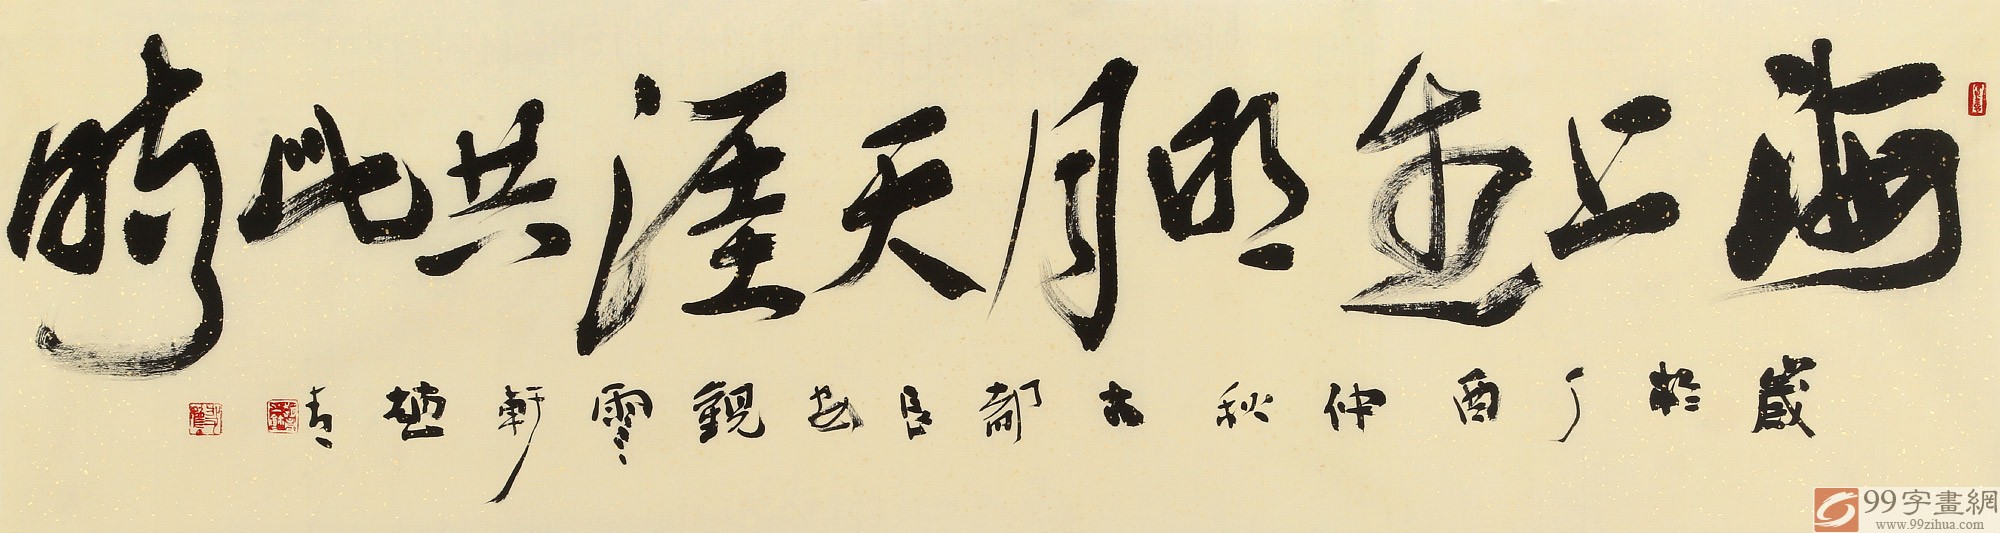 海上生明月天涯共此時
歲於丁酉仲秋古都長安觀雲軒
99字畫網
www.99zihua.com